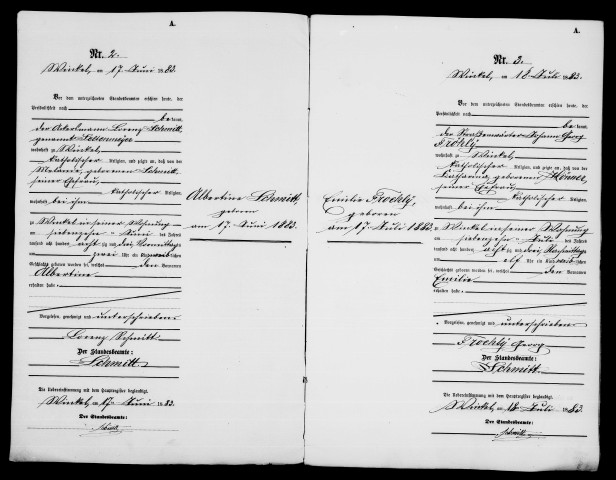 A.
Nr. 2.
Winkel, am 17. Juni 1883.
Vor dem unterzeichneten Standesbeamten erschien heute, der
Persönlichkeit nach
bekannt,
der Ackersmann Lorenz Schmitt,
genannt
wohnhaft zu Winkel,
katholischer Religion, und zeigte an, daß von der
Melanie, geborenen Schmitt,
seiner Ehefrau
katholischer Religion,
wohnhaft bei ihm
zu Winkel in seiner Wohnung
am siebenzehn ten Juni des Jahres
tausend acht hundert achtzig drei Vormittags
um zwei Uhr ein Kind weiblichen
Geschlechts geboren worden sei, welches den Vornamen
Albertine
erhalten habe.
Vorgelesen, genehmigt und unterschrieben
Lorenz Schmitt
Der Standesbeamte:
Schmitt
Die Uebereinstimmung mit dem Hauptregister beglaubigt.
Winkel, am 17. Juni 1883.
Der Standesbeamte:
Schmitt
Albertine Schmitt,
geboren
am 17. Juni 1883.
A.
Nr. 3.
Winkel, am 18. Juli 1883.
Vor dem unterzeichneten Standesbeamten erschien heute, der
Persönlichkeit nach
bekannt,
der Straßenwärter Johann Georg
Fröhly
wohnhaft zu Winkel,
katholischer Religion, und zeigte an, daß von der
Katharina, geborenen
seiner Ehefrau
katholischer Religion,
wohnhaft bei ihm
zu Winkel in seiner Wohnung
am siebenzehn ten Juli des Jahres
tausend acht hundert achtzig drei Nachmittags
um elf Uhr ein Kind weiblichen
Geschlechts geboren worden sei, welches den Vornamen
Emilie
erhalten habe.
Vorgelesen, genehmigt und unterschrieben
Fröhly Georg
Der Standesbeamte:
Schmitt
Die Uebereinstimmung mit dem Hauptregister beglaubigt.
Winkel, am 18. Juli 1883.
Der Standesbeamte:
Schmitt
Emilie Fröhly,
geboren
am 17. Juli 1883.